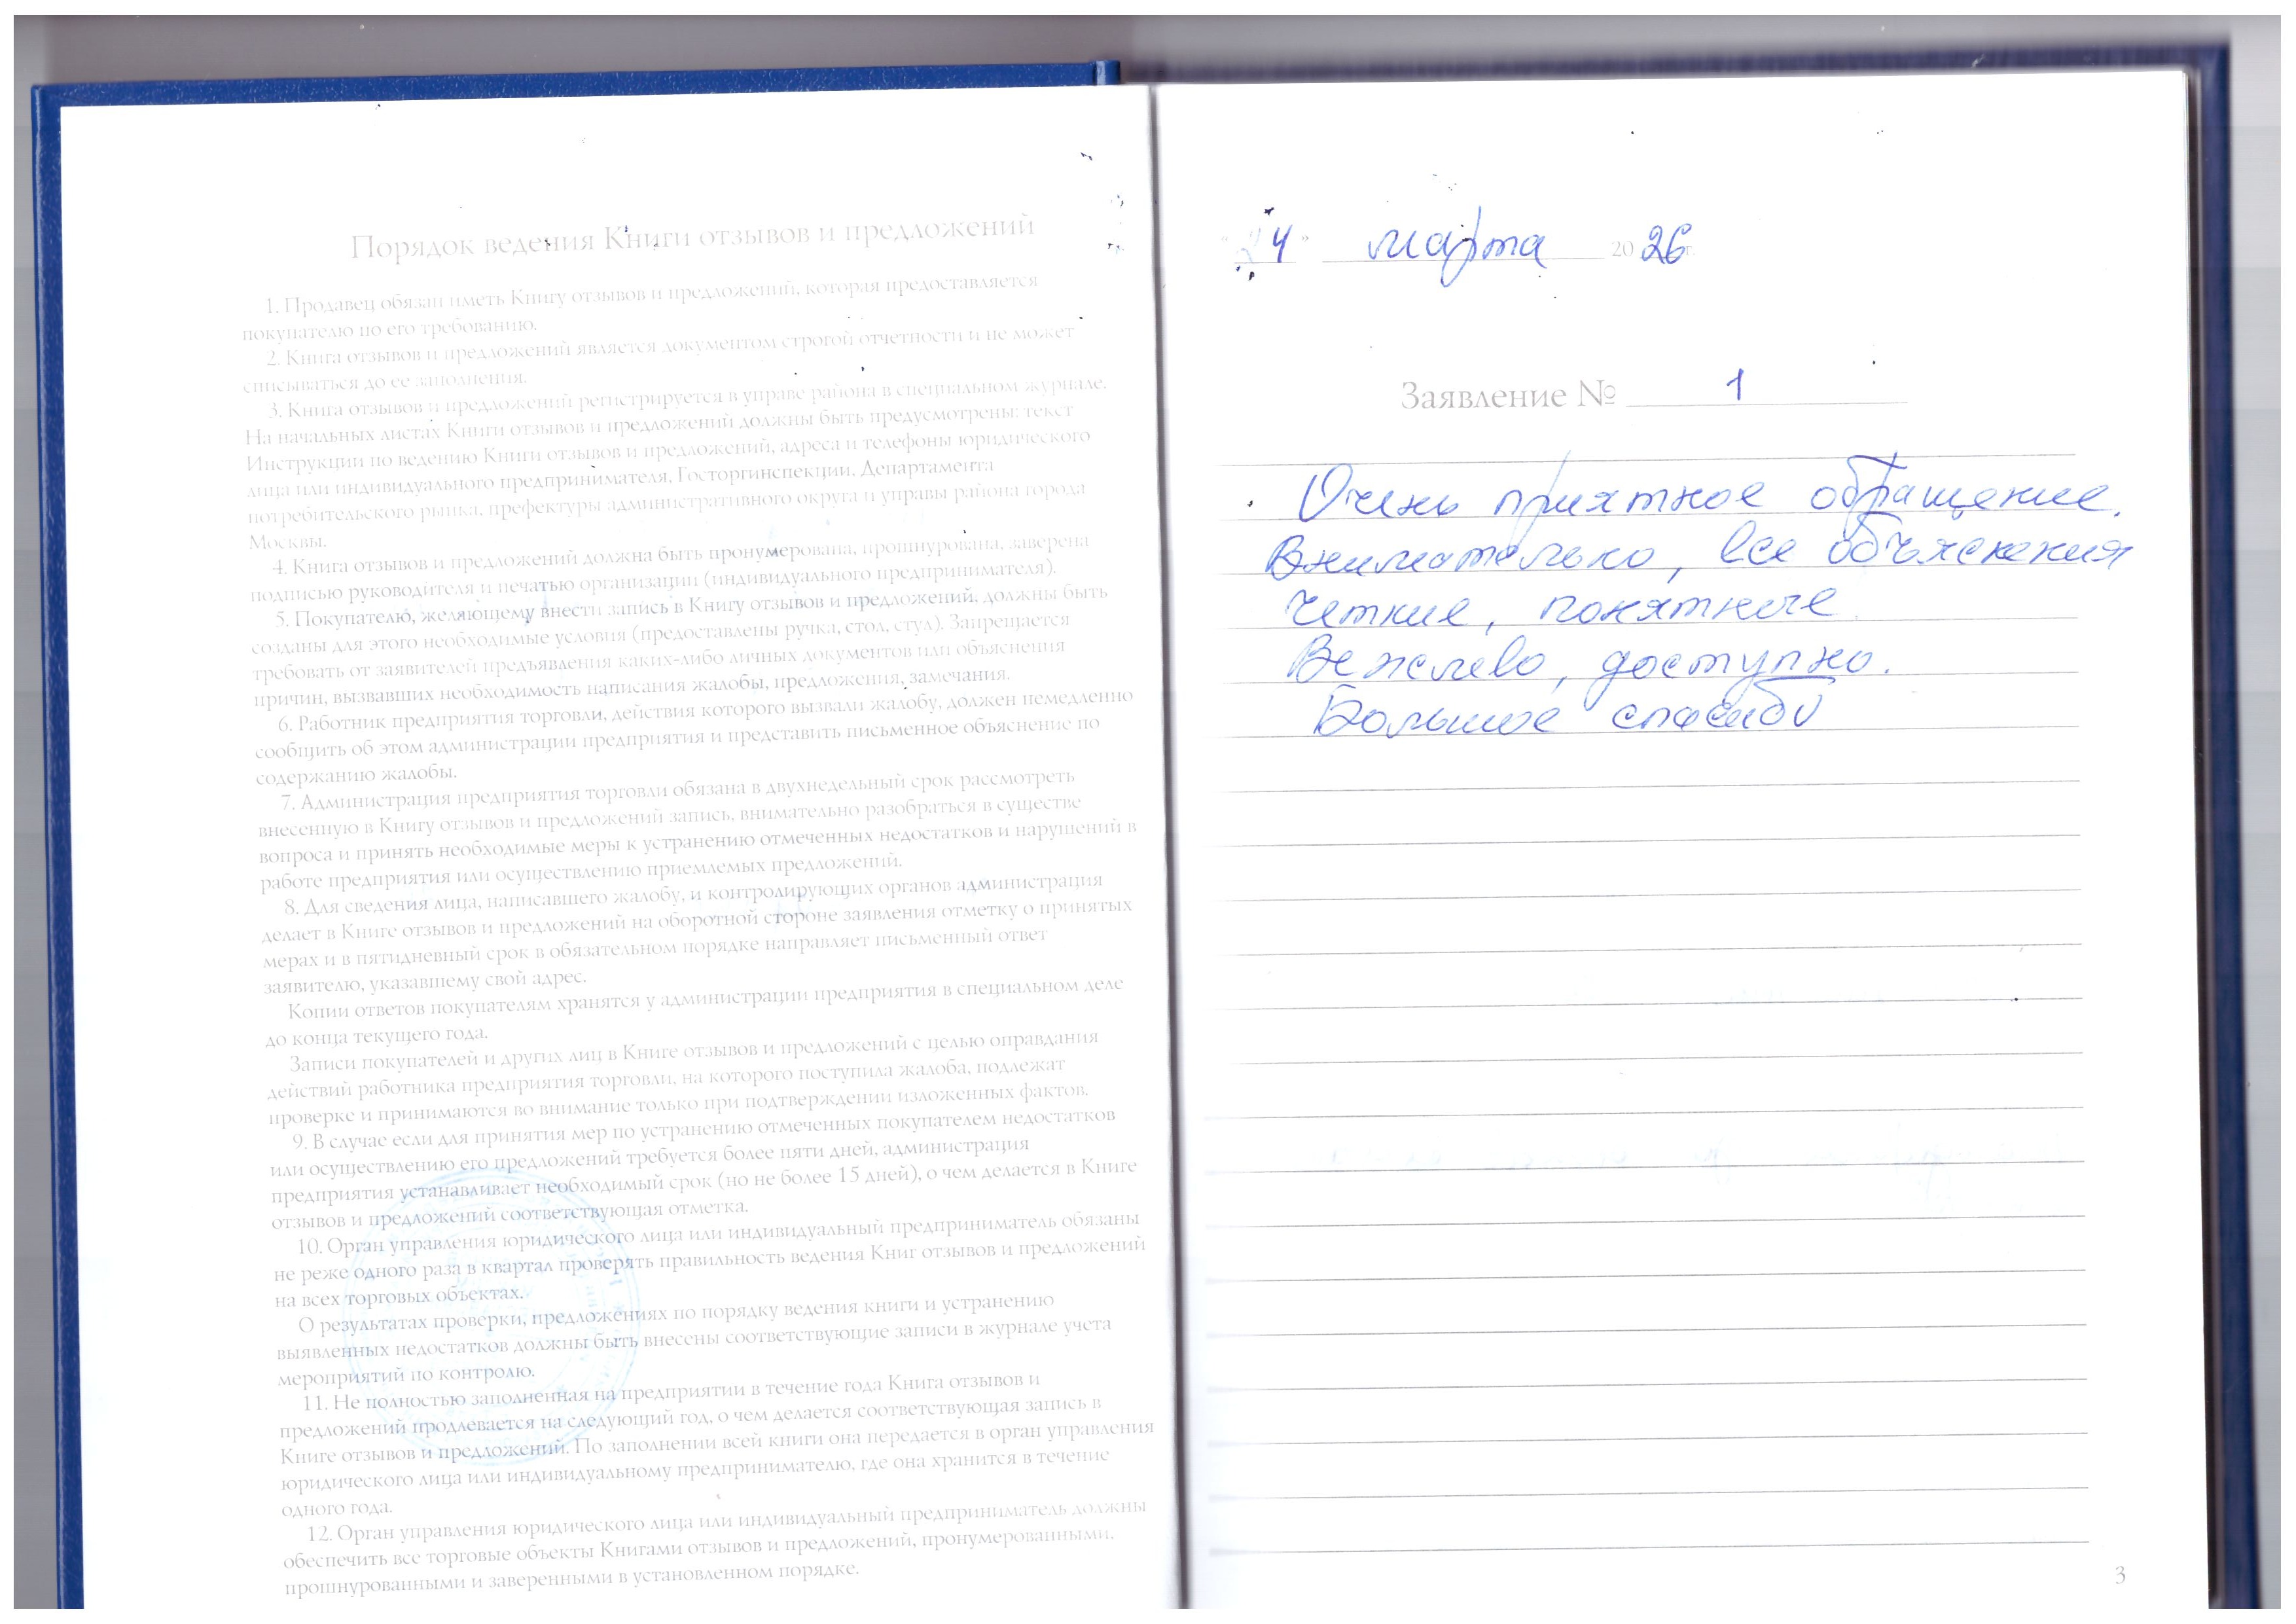 Порядок ведения Книги отзывов и предложений
1. Продавец обязан иметь Книгу отзывов и предложений, которая предоставляется
покупателю по его требованию.
2. Книга отзывов и предложений является документом строгой отчетности и не может
списываться до ее заполнения.
3. Книга отзывов и предложений регистрируется в управе района в специальном журнале.
На начальных листах Книги отзывов и предложений должны быть предусмотрены: текст
Инструкции по ведению Книги отзывов и предложений, адреса и телефоны юридического
лица или индивидуального предпринимателя, Госторгинспекции, Департамента
потребительского рынка, префектуры административного округа и управы района города
Москвы.
4. Книга отзывов и предложений должна быть пронумерована, прошнурована, заверена
подписью руководителя и печатью организации (индивидуального предпринимателя).
5. Покупателю, желающему внести запись в Книгу отзывов и предложений, должны быть
созданы для этого необходимые условия (предоставлены ручка, стол, стул). Запрещается
требовать от заявителей предъявления каких-либо личных документов или объяснения
причин, вызвавших необходимость написания жалобы, предложения, замечания.
6. Работник предприятия торговли, действия которого вызвали жалобу, должен немедленно
сообщить об этом администрации предприятия и представить письменное объяснение по
содержанию жалобы.
7. Администрация предприятия торговли обязана в двухнедельный срок рассмотреть
внесенную в Книгу отзывов и предложений запись, внимательно разобраться в существе
вопроса и принять необходимые меры к устранению отмеченных недостатков и нарушений в
работе предприятия или осуществлению приемлемых предложений.
8. Для сведения лица, написавшего жалобу, и контролирующих органов администрация
делает в Книге отзывов и предложений на оборотной стороне заявления отметку о принятых
мерах и в пятидневный срок в обязательном порядке направляет письменный ответ
заявителю, указавшему свой адрес.
Копии ответов покупателям хранятся у администрации предприятия в специальном деле
до конца текущего года.
Записи покупателей и других лиц в Книге отзывов и предложений с целью оправдания
действий работника предприятия торговли, на которого поступила жалоба, подлежат
проверке и принимаются во внимание только при подтверждении изложенных фактов.
9. В случае если для принятия мер по устранению отмеченных покупателем недостатков
или осуществлению его предложений требуется более пяти дней, администрация
предприятия устанавливает необходимый срок (но не более 15 дней), о чем делается в Книге
отзывов и предложений соответствующая отметка.
10. Орган управления юридического лица или индивидуальный предприниматель обязаны
не реже одного раза в квартал проверять правильность ведения Книг отзывов и предложений
на всех торговых объектах.
О результатах проверки, предложениях по порядку ведения книги и устранению
выявленных недостатков должны быть внесены соответствующие записи в журнале учета
мероприятий по контролю.
11. Не полностью заполненная на предприятии в течение года Книга отзывов и
предложений продлевается на следующий год, о чем делается соответствующая запись в
Книге отзывов и предложений. По заполнении всей книги она передается в орган управления
юридического лица или индивидуальному предпринимателю, где она хранится в течение
одного года.
12. Орган управления юридического лица или индивидуальный предприниматель должны
обеспечить все торговые объекты Книгами отзывов и предложений, пронумерованными,
прошнурованными и заверенными в установленном порядке.
"24" марта 2026 г.
Заявление № 1
Очень приятное обращение.
Внимательно, все объяснения
четкие, понятные
Вежливо, доступно.
Большое спасибо
3